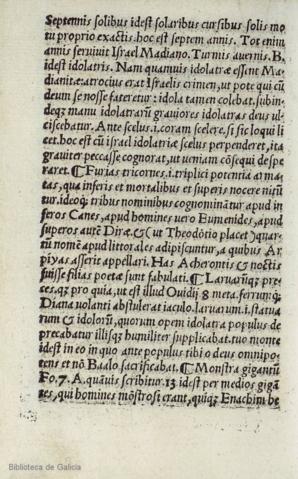 Septennis solibus idest solaribus cursibus solis mo
tu proprio exactis.hoc est septem annis. Tot enim
annis seruiuit Israel Madiano. Turmis auernis. B.
idest idolatris. Nam quamuis idolatræ essent Ma
dianitæ:atrocius erat Israelis crimen, ut pote qui cū
deum se nosse fateretur: idola tamen colebat.subin
deq; manu idolatrarū grauiores idolatras deus ul
ciscebatur. Ante scelus.i.coram scelere.si sic loqui li
cet.hoc est cū israel idolatriæ scelus perpenderet, ita
grauiter peccasse cognorat, ut ueniam cōsequi despe
raret. ¶ Furias tricornes.i.triplici potentia armatas
tas, quæ inferis et mortalibus et superis nocere nitū
tur.ideoq; tribus nominibus cognominātur apud in
feros Canes, apud homines uero Eumenides, apud
superos autē Diræ:&( ut Theodōtio placet )quar
tū nomē apud littorales adipiscuntur, a quibus Ar
piyas asserit appellari. Has Acherontis & noctis
fuisse filias poetæ sunt fabulati. ¶ Laruarūq; pre
ces.q; pro quia, ut est illud Ouidij 8 meta.ferrumq;
Diana uolanti abstulerat iaculo.laruarum.i.statua
rum & idolorū, quorum opem idolatra populus de
precabatur illisq; humiliter supplicabat.tuo monte
idest in eo in quo ante populus tibi o deus omnipo
tens et nō Baalo sacrificabat. ¶ Monstra gigantū
Fo.7. A.quāuis scribitur.13 idest per medios gigā
tes, qui homines mōstrosi erant, quiq; Enachim he
Biblioteca de Galicia